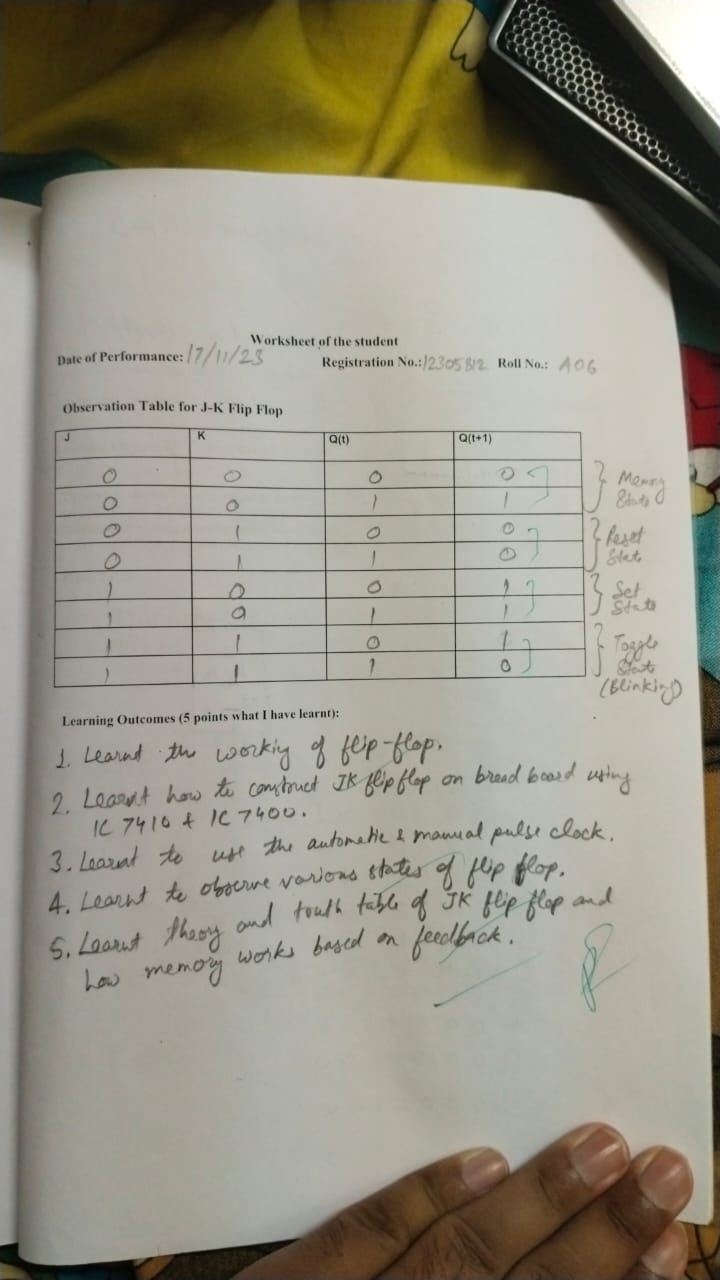 Worksheet of the student
Date of Performance: 17/11/23 Registration No.: 12305812 Roll No.: A06
Observation Table for J-K Flip Flop
J K Q(t) Q(t+1)
0 0 0 0 Memory
0 0 1 1 State
0 1 0 0 Reset
0 1 1 0 State
1 0 0 1 Set
1 0 1 1 State
1 1 0 1 Toggle
1 1 1 0 State
(Blinking)
Learning Outcomes (5 points what I have learnt):
1. Learnt the working of flip-flop.
2. Learnt how to construct JK flip flop on bread board using
IC 7410 & IC 7400.
3. Learnt to use the automatic & manual pulse clock.
4. Learnt to observe various states of flip flop.
5. Learnt theory and truth table of JK flip flop and
how memory works based on feedback.